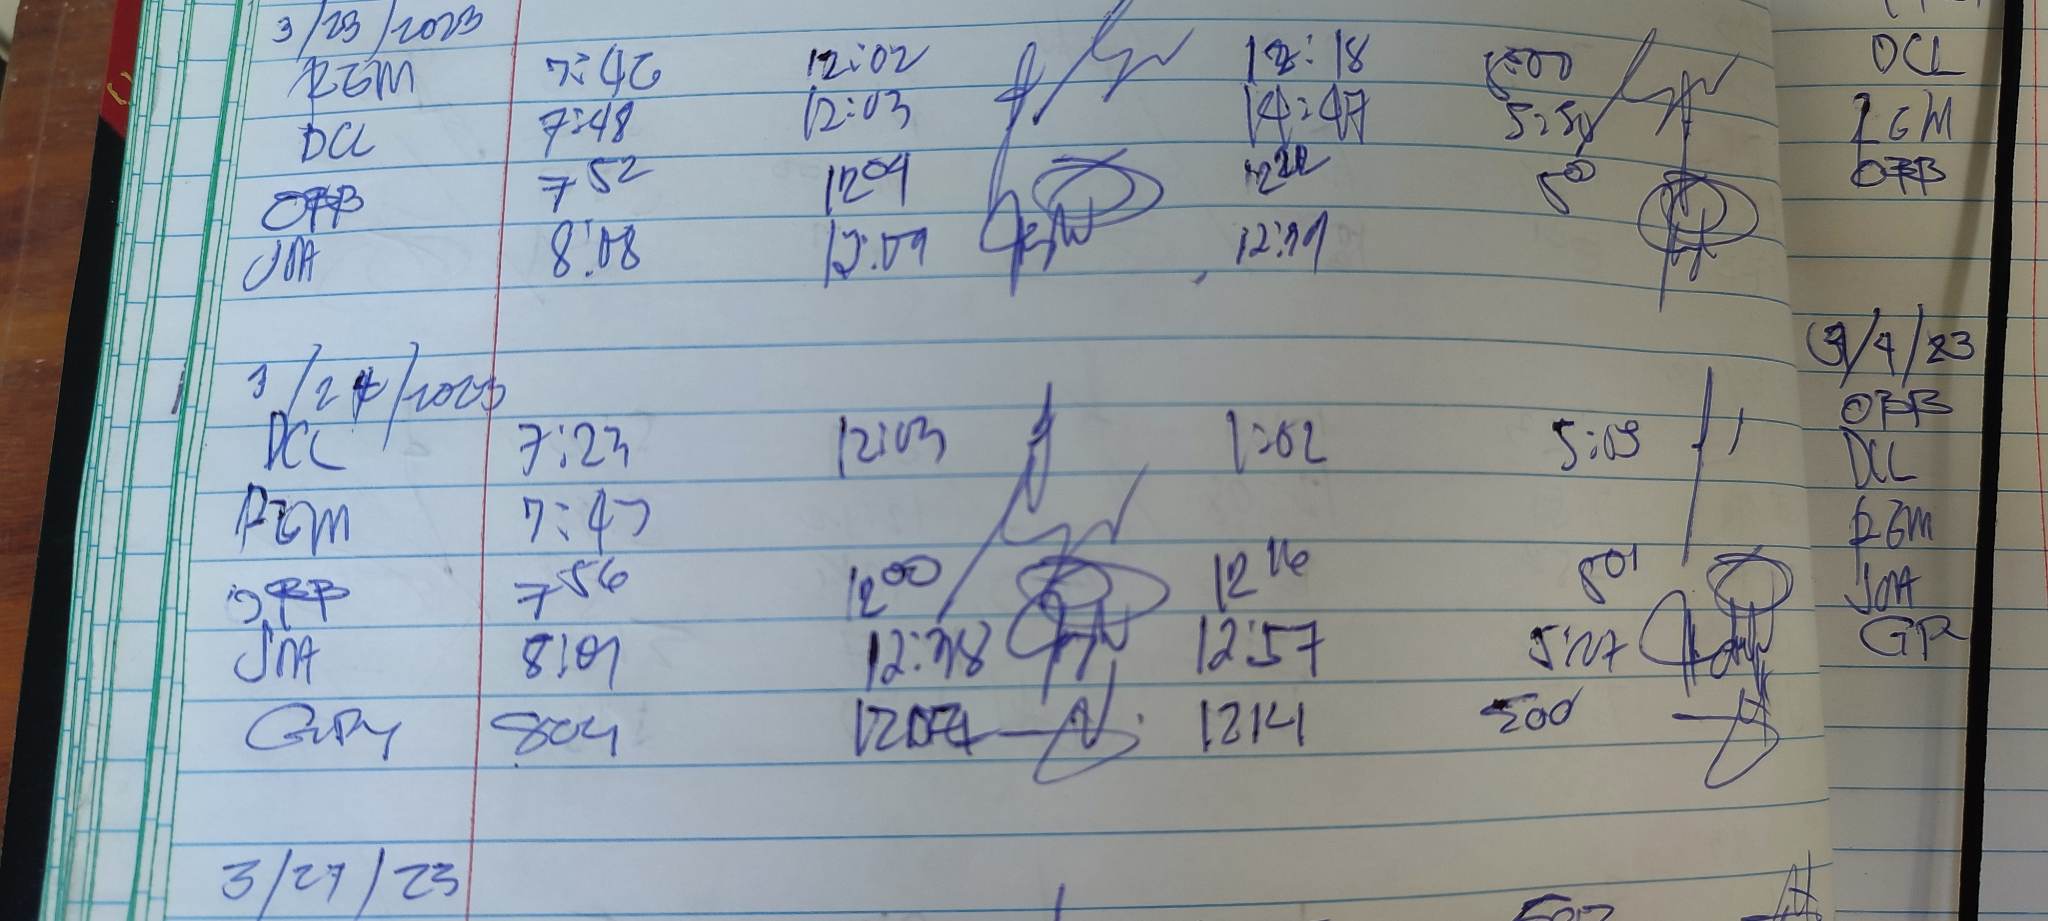 3/23/2023
RGM 7:46 12:02 12:18 5:00
DCL 7:48 12:03 5:54
OPB 7 52 12 09 12 22 5 0
JMA 8:08 12:09 12:19
3/24/2023
DCL 7:23 12:03 1:02 5:09
RGM 7:47
OPB 7 56 12 00 12 16 5 01
JMA 8:01 12:38 12:57 5:07
804 1204 1214 500
3/27/23
DCL
RGM
OPB
3/4/23
OPB
DCL
RGM
JMA
GR